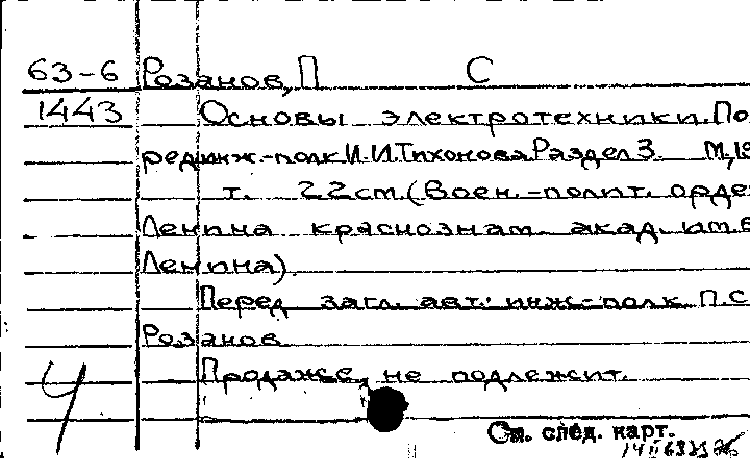 63-6 Розанов, П С
1443 Основы электротехники. По
ред. инж.-полк. И.И. Тихонова. Раздел 3. М, 19
т. 22 см. (Воен.-полит. орде
Ленина краснознам. акад. им. В
Ленина).
Перед загл. авт.: инж-полк П.С
Розанов
Продаже не подлежит.
Ч
См. след. карт.